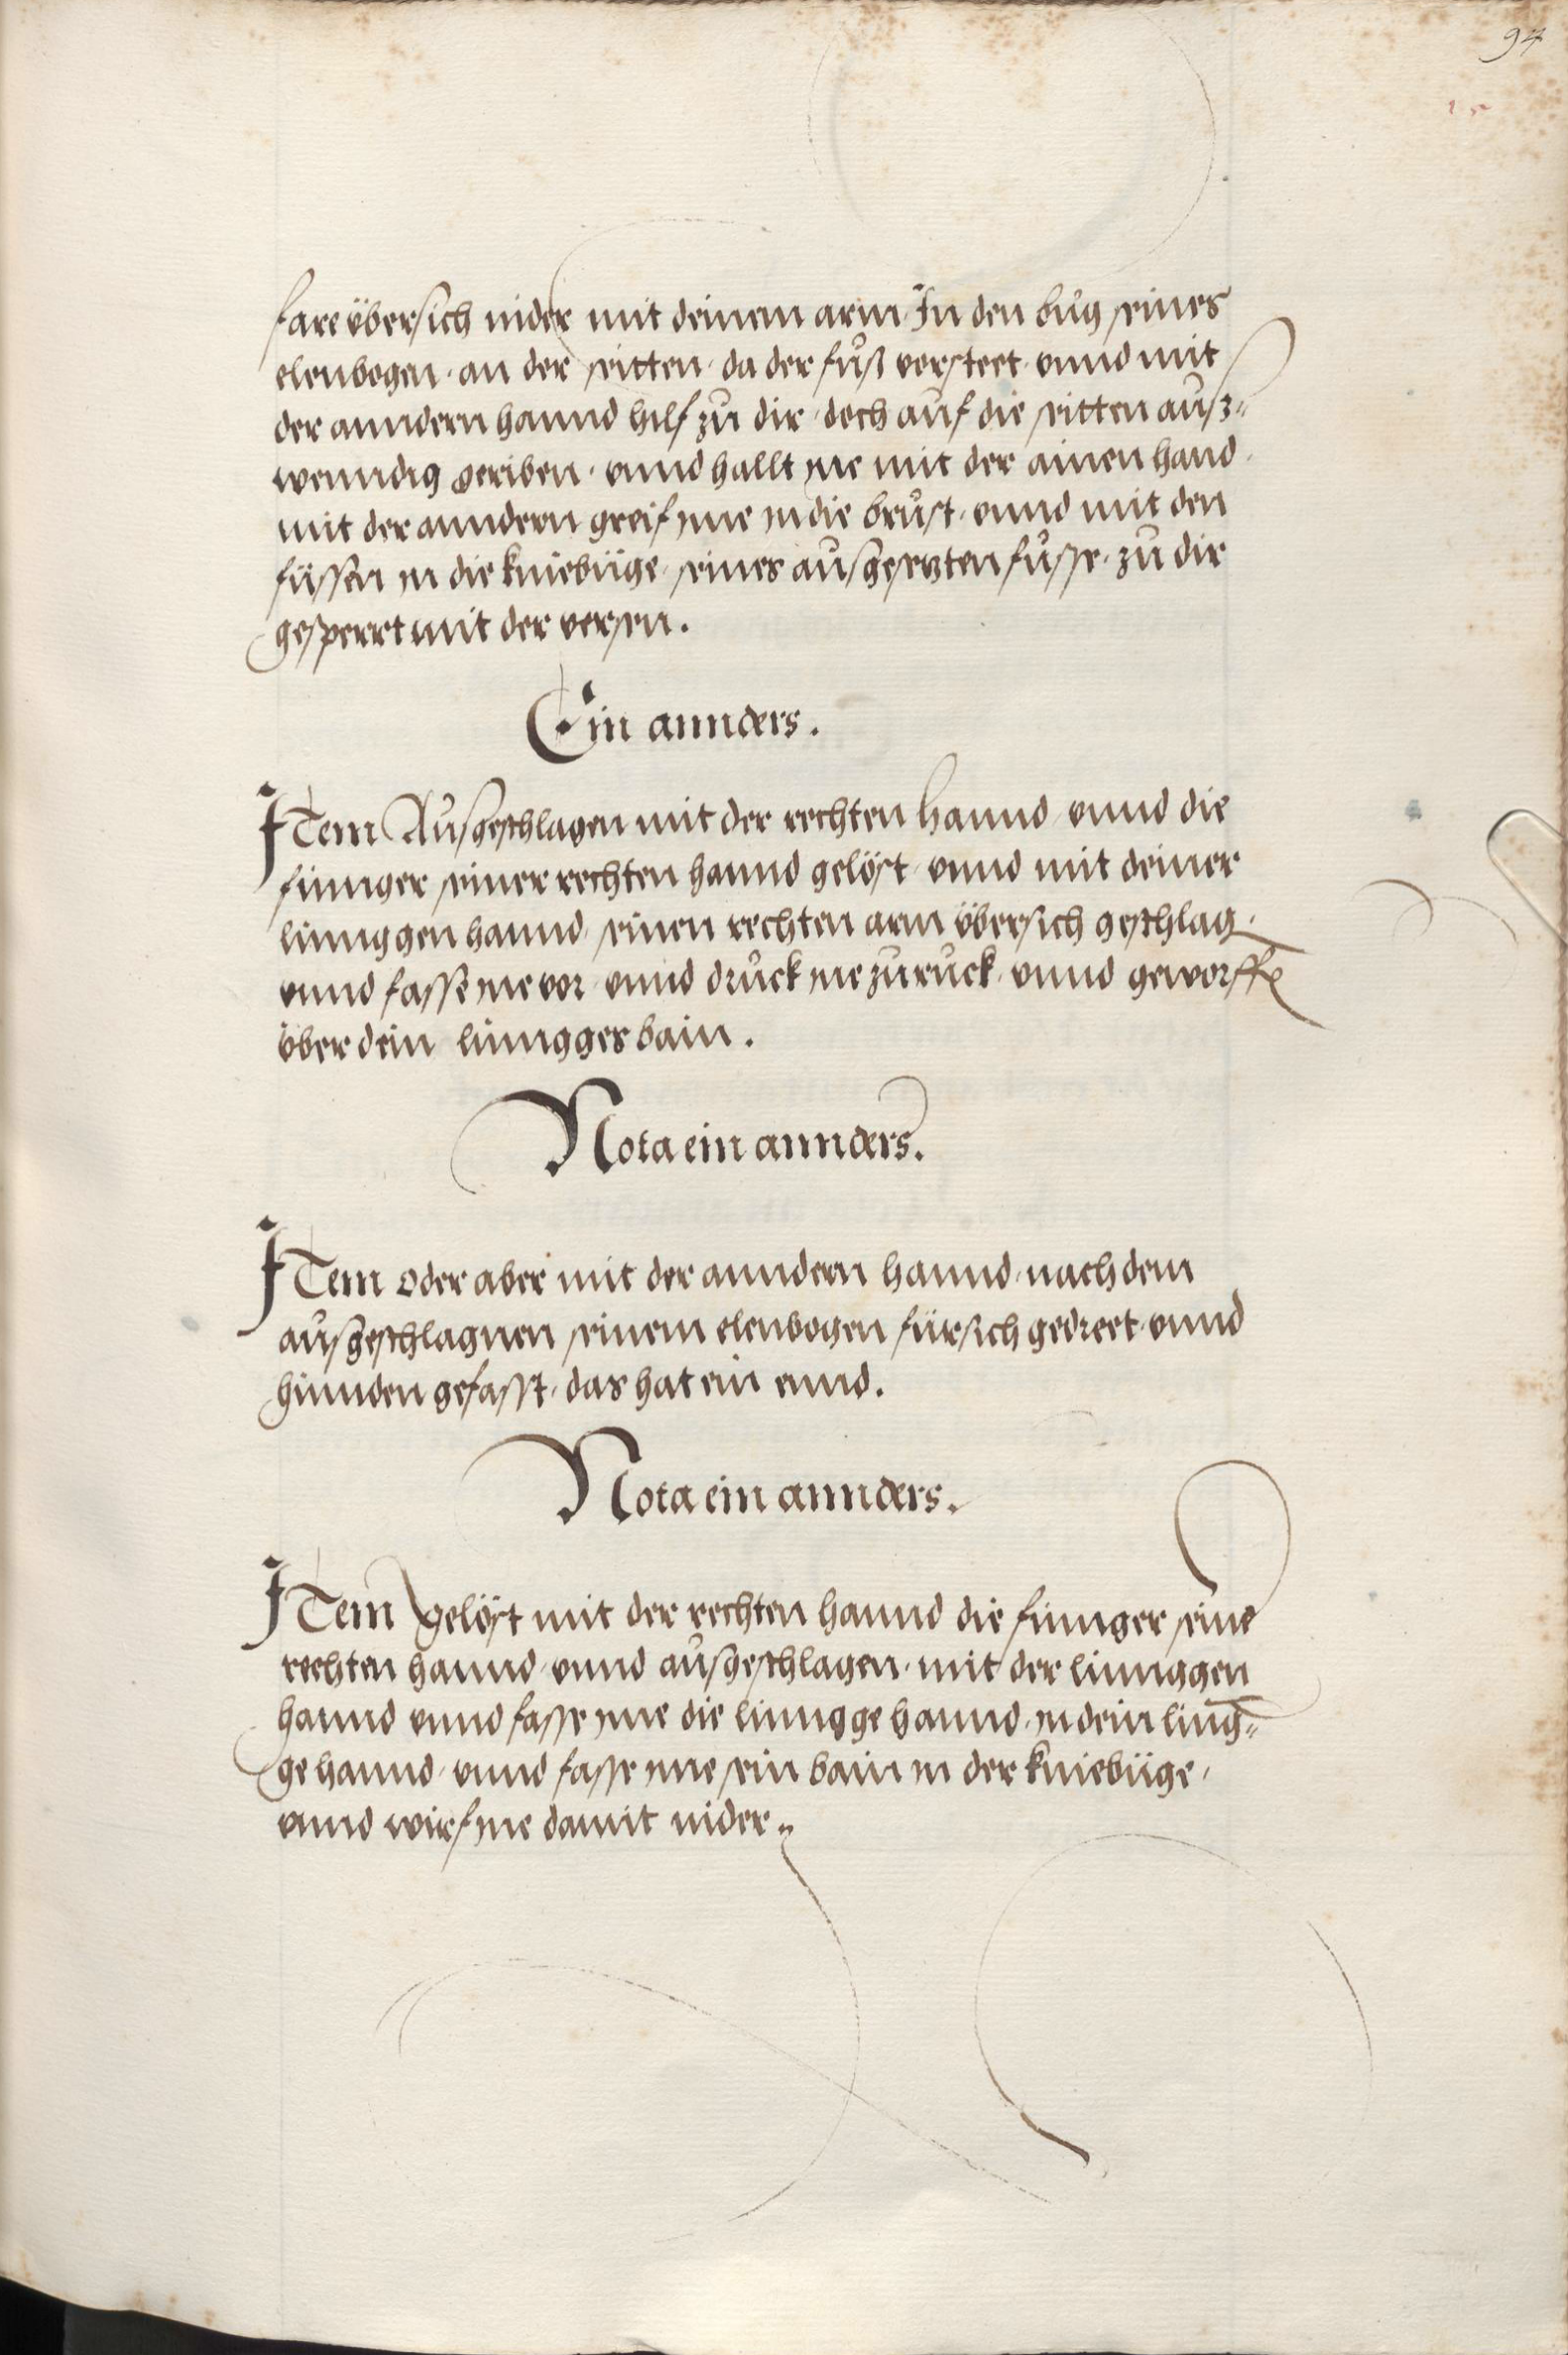 94
fare übersich nider mit deinem arm In den bůg seines
elenbogen · an der seitten · da der fůß versteet · vnnd mit
der anndern hannd hilf zů dir · doch auf die seitten auß⸗
wenndig geriben · vnnd hallt ine mit der ainen hand ·
mit der anndern greif ime in die brůst · vnnd mit den
füssen in die kniebüge · seines außgesetzten fůsse · zů dir
gesperrt mit der versen .
Ein annders .
ITem Außgeschlagen mit der rechten hannd · vnnd die
finnger seiner rechten hannd gelöst · vnnd mit deiner
linnggen hannd · seinen rechten arm übersich geschlag̅ ·
vnnd fasse ine vor · vnnd drůck ine zůrůck · vnnd geworffe̅
über dein linngges bain .
Nota ein annders .
ITem oder aber mit der anndern hannd · nach dem
außgeschlagnen seinem elenbogen fürsich gedreet · vnnd
hinnden gefasst · das hat ein ennd .
Nota ein annders .
ITem gelöst mit der rechten hannd die finnger seine
rechten hannd · vnnd außgeschlagen · mit der linnggen
hannd vnnd fasse ime die linngge hannd · in dein ling⸗
ge hannd · vnnd fasse ime sein bain in der kniebüge ·
vnnd wirf ine damit nider